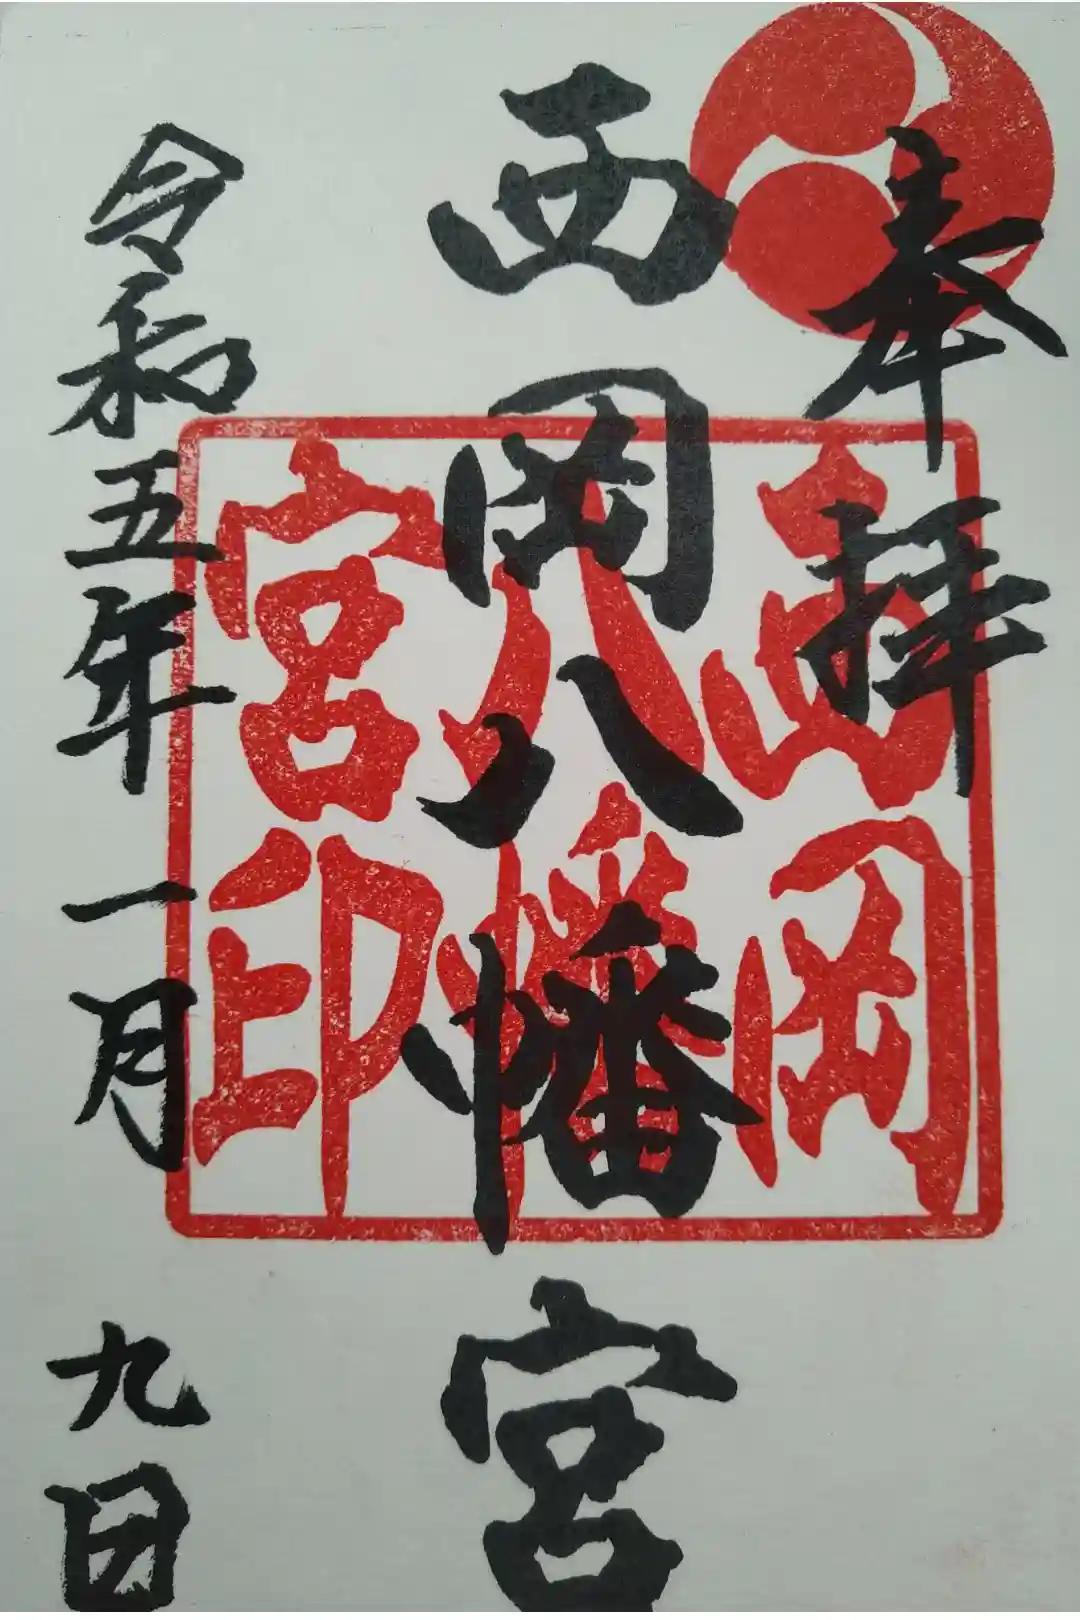 奉拝
西岡八幡宮
令和五年一月九日
西岡
八幡
宮印